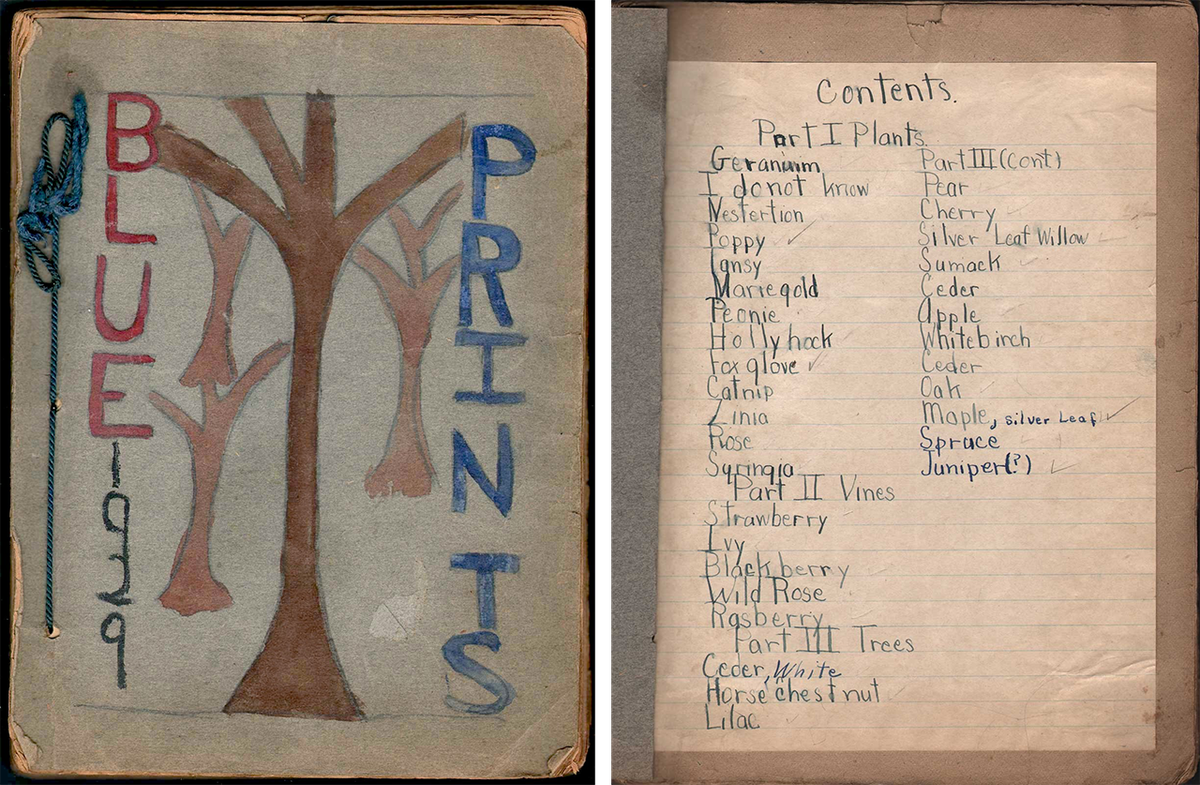 BLUE
PRINTS
1929
Contents.
Part I Plants.
Geranium
I do not know
Nestertion
Poppy ✓
Tansy
Mariegold
Peonie
Hollyhock
Foxglove ✓
Catnip
Zinia
Rose
Syringia
Part II Vines
Strawberry
Ivy
Blackberry
Wild Rose
Rasberry
Part III Trees
Ceder, White
Horse chestnut
Lilac
Part III (cont)
Pear
Cherry
Silver Leaf Willow
Sumack
Ceder
Apple
Whitebirch
Ceder
Oak
Maple, silver Leaf ✓
Spruce
Juniper(?) ✓